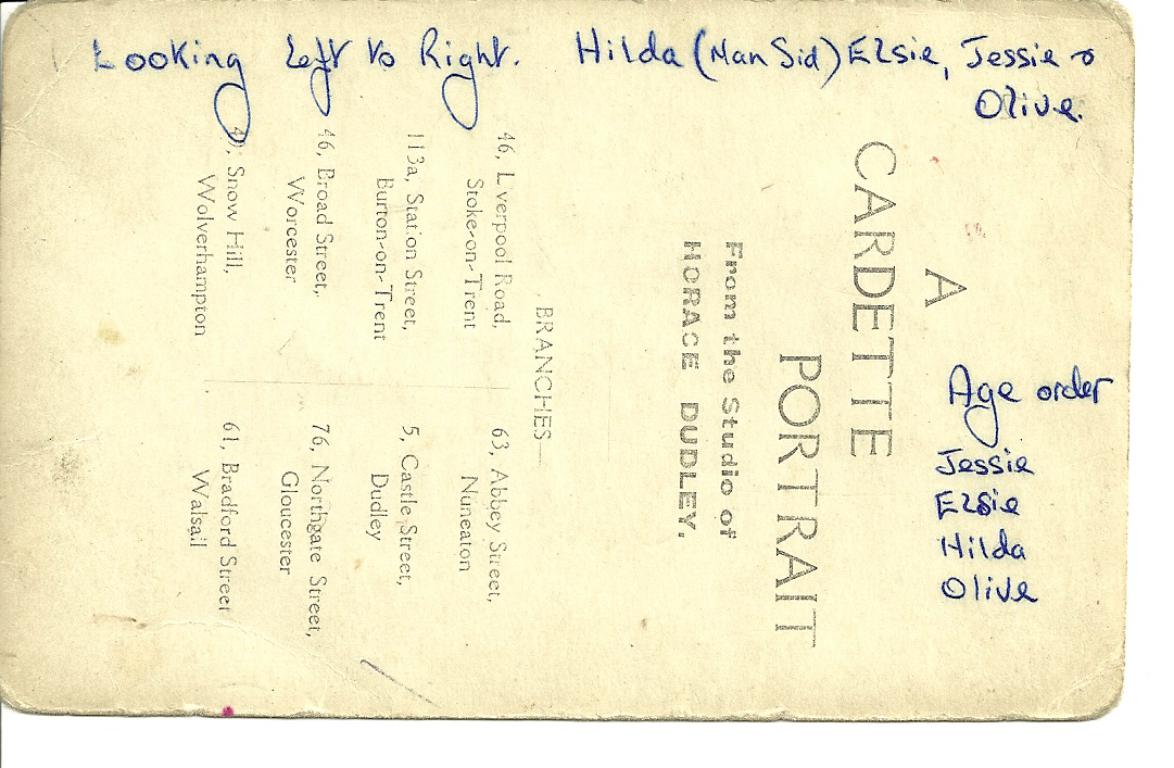 Looking Left to Right. Hilda (Nan Sid) Elsie, Jessie &
Olive.
Age order
Jessie
Elsie
Hilda
Olive
A
CARDETTE
PORTRAIT
From the Studio of
HORACE DUDLEY.
BRANCHES—
46, Liverpool Road,
Stoke-on-Trent
113a, Station Street,
Burton-on-Trent
46, Broad Street,
Worcester
Snow Hill,
Wolverhampton
63, Abbey Street,
Nuneaton
5, Castle Street,
Dudley
76, Northgate Street,
Gloucester
61, Bradford Street
Walsall